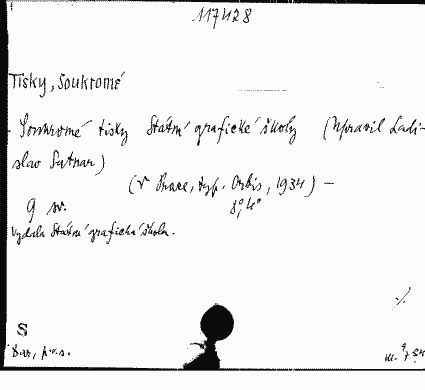 117428
Tisky, Soukromé
Soukromé tisky Státní grafické školy (Upravil Ladi-
slav Sutnar)
(V Praze, typ. Orbis, 1934) –
8°, 4°
9 sv.
Vydala Státní grafická škola.
S
Dar, p.v.s.